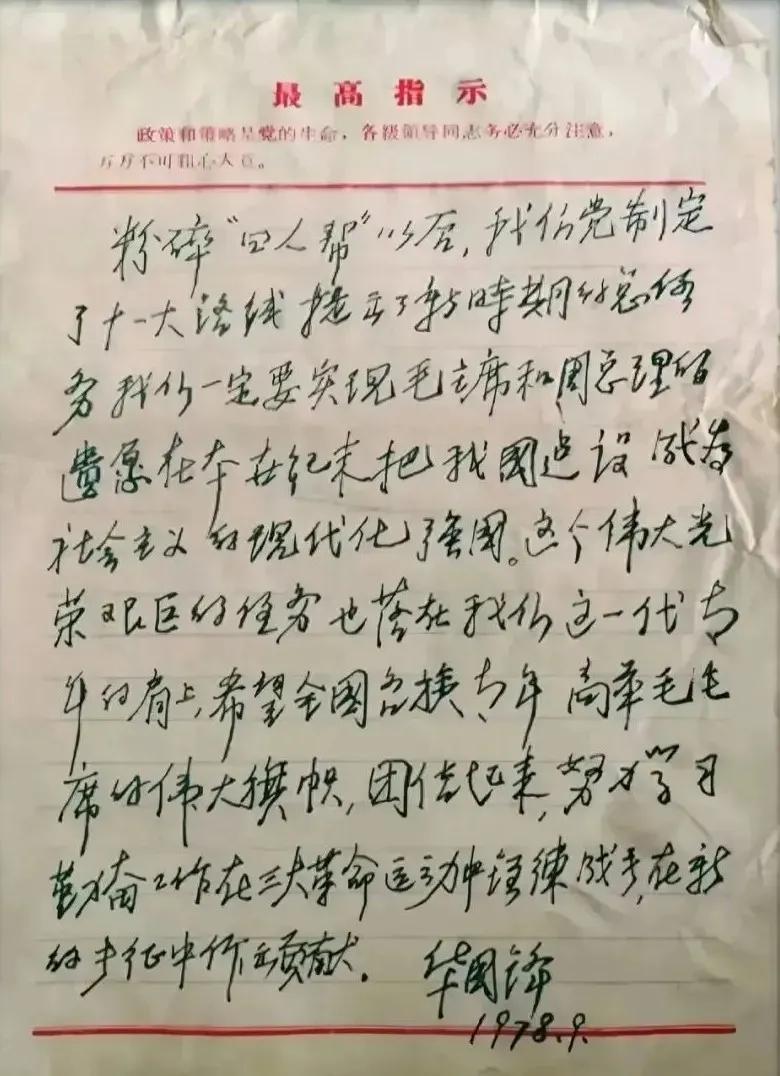 最高指示
政策和策略是党的生命，各级领导同志务必充分注意，
万万不可粗心大意。
粉碎“四人帮”以后，我们党制定
了十一大路线提出了新时期的总任
务我们一定要实现毛主席和周总理的
遗愿在本世纪末把我国建设成为
社会主义的现代化强国。这个伟大光
荣艰巨的任务也落在我们这一代青
年的肩上，希望全国各族青年高举毛主
席的伟大旗帜，团结起来，努力学习
勤奋工作在三大革命运动中锻练成长，在新
的长征中作出贡献。
华国锋
1978.9.